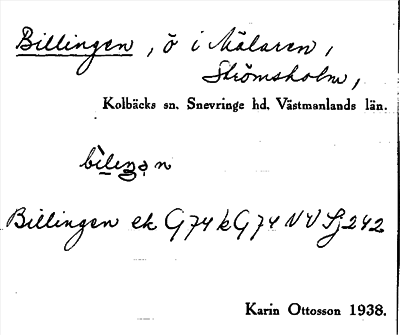 Billingen, ö i Mälaren,
Strömsholm,
Kolbäcks sn. Snevringe hd. Västmanlands län.
Billingen ek G74 k G74 NV Sj 242
Karin Ottosson 1938.